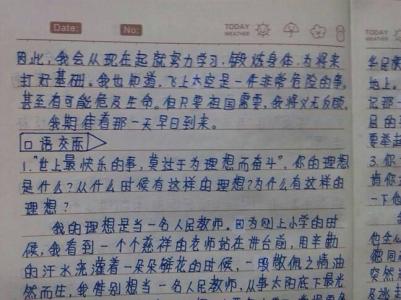 Date:
No:
TODAY
WEATHER
因此，我会从现在起就努力学习，锻炼身体，为将来
打好基础。我也知道，飞上太空是一件非常危险的事，
甚至有可能危及生命。但只要祖国需要，我将义无反顾。
我期待着那一天早日到来。
口语交际
1."世上最快乐的事，莫过于为理想而奋斗"。你的理想
是什么？从什么时候有这样的理想？为什么有这样的
理想？
我的理想是当一名人民教师。因为刚上小学的时
候，我看到一个个慈祥的老师站在讲台前，用辛勤
的汗水浇灌着一朵朵鲜花的时候，一股敬佩之情油
然而生，我特别想当一名人民教师，从事太阳底下最光
TODAY
WEATHER
地上。
记那一
且的
要举起
3.你
肯你
一下
他
突然